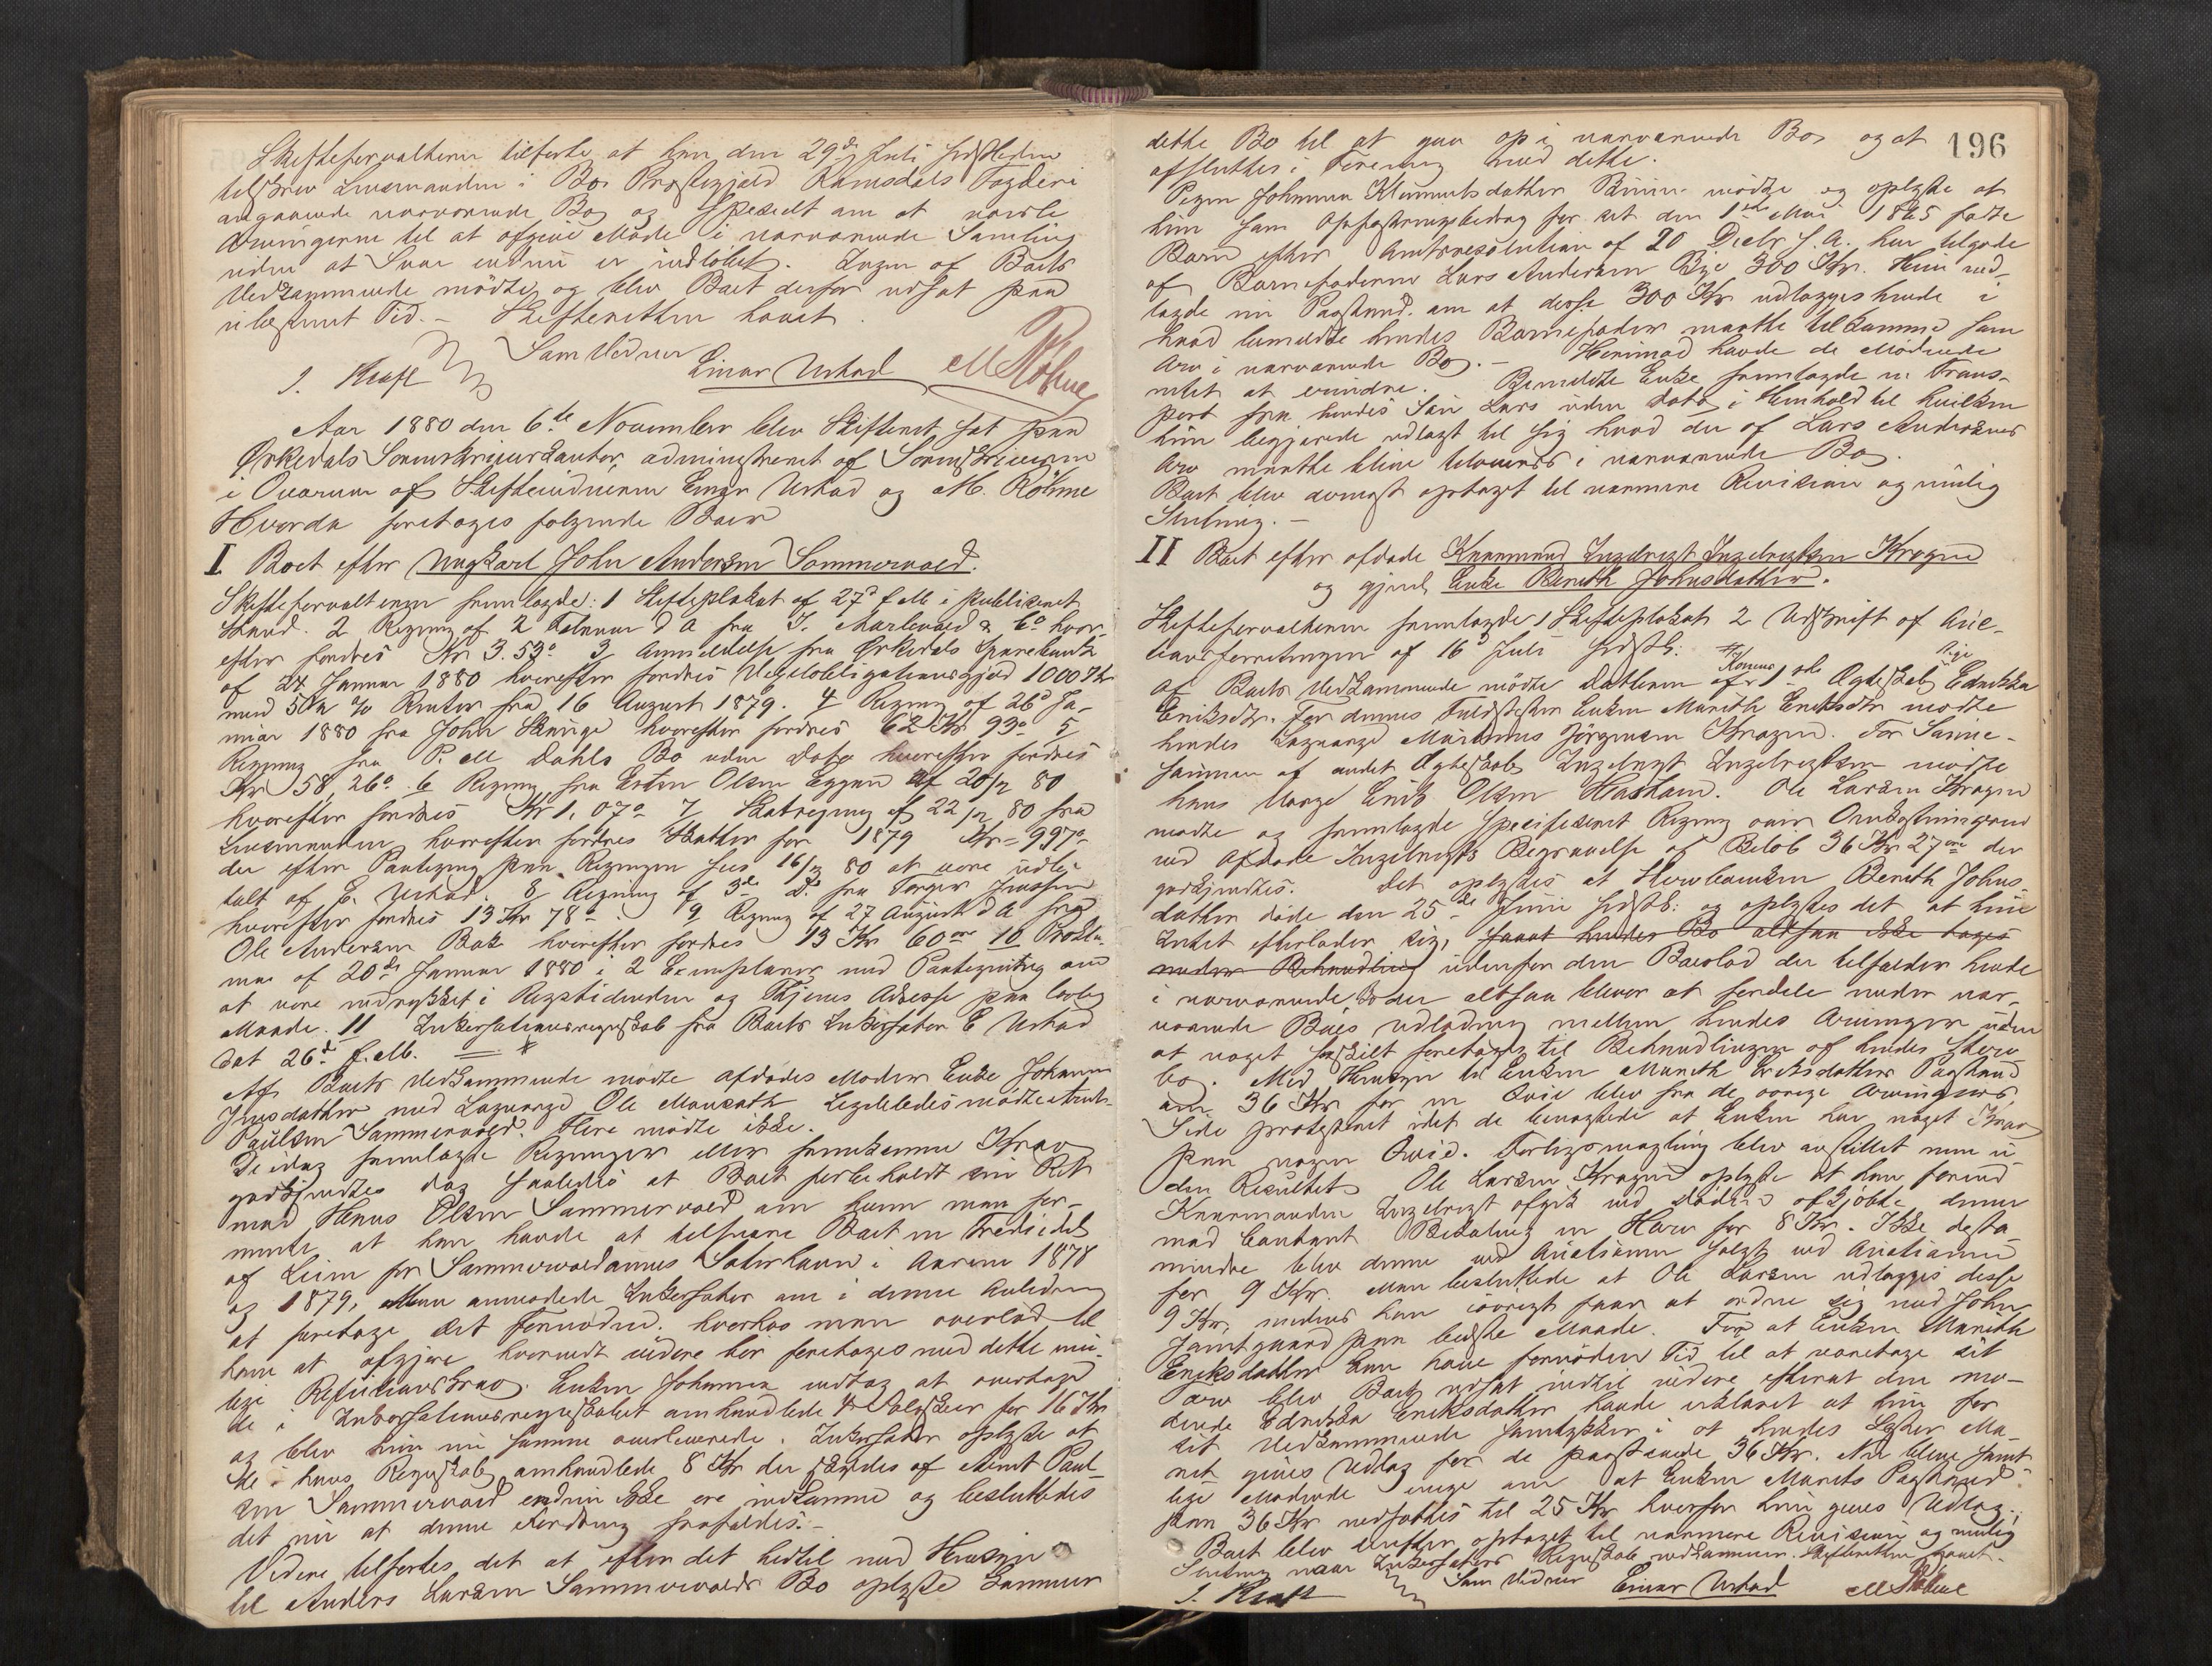 Skifteforvalteren tilførte at han den 29de Juli sidstleden
tilskrev Lensmanden i Bos Præstegjæld Ramsdals Fogderi
angaaende nærværende Bo og specielt om at varsle
Arvingerne til at afgive Møde i nærværende Samling
uden at Svar endnu er indløbet. Ingen af Boets
Vedkommende mødte og blev Boet derfor udsat paa
ubestemt Tid. – Skifteretten hævet
Som Vidner
J. Kraft Einar Urstad M Röhme
Aar 1880 den 6te November blev Skifteret sat paa
Ørkedals Sorenskriverkontor, administreret af Sorenskriveren
i Overvær af Skiftevidnerne Einar Urstad og M. Röhme
Hvorda foretoges følgende Boer
I. Boet efter Ungkarl John Andersen Sommervold.
Skifteforvalteren fremlagde: 1 Skifteplakat af 27d f. M. i publiseret
Stand. 2 Regning af 2 Februar d A fra J. Marlevold & Co hvor-
efter fordres Kr 3.53ø 3 Anmeldelse fra Ørkedals Sparebank
af 24 Januar 1880 hvorefter fordres Vexelobligationsgjæld 1000 Kr
med 5 % Renter fra 16 August 1879. 4 Regning af 26d Ja-
nuar 1880 fra John hvorefter fordres 62 Kr 93ø 5
Regning fra P. M Dahls Bo uden Dato hvorefter fordres
Kr 58,26ø. 6 Regning fra Esten Olsen Eggen af 20/2 80
hvorefter fordres Kr 1,07ø 7 Skatregning af 22/2 80 fra
Lensmanden hvorefter fordres Skatter for 1879 Kr = 997ø
der efter Paategning paa Regningen sees 16/3 80 at være udbe-
talt af E. Urstad. 8 Regning af 3de d.s fra Torger Jonssen
hvorefter fordres 13 Kr 78ø. 9 Regning af 27 August d A fra
Ole Andersen Bak hvorefter fordres 13 Kr 60øre 10 Prokla-
ma af 20de Januar 1880 i 2 Exemplarer med Paategning om
at være indrykket i Rigstidenden og Thjems Adresse paa lovlig
Maade. 11 Inkassationsregnskab fra Boets Inkassator E Urstad
dat 26d f. M.
Af Boets Vedkommende mødte afdødes Moder Enke Johanna
Jonsdatter med Laugværge Ole Ligeledes mødte Arnt
Paulsen Sommervold. Flere mødte ikke.
De idag fremlagte Regninger eller fremkomne Krav
godkjendtes dog saaledes at Boet forbeholdt sin Ret
mod Hans Olsen Sommervold om hvem man for-
mente at han havde at tilsvare Boet en Trediedel
af Leien for Sommervoldannes Sæterhavn i Aarene 1878
og 1879. Man anmodede Inkassator om i denne Anledning
at foretage det Fornødne. hvorhos man overlod til
ham at afgjøre hvorvidt videre bør foretages med dette mu-
lige Refusionskrav. Enken Johanna vedtog at overtage
de i Inkassationsregnskabet omhandlede 4 Sølvskeer for 16 Kr
og blev hun nu samme overleverede. Inkassator oplyste at
de i hans Regnskab omhandlede 8 Kr der skyldes af Arnt Paul-
sen Sommervold endnu ikke ere indkomne og besluttedes
det nu at denne Fordring frafaldes. –
Videre tilførtes det at efter det hidtil med Hensyn
til Anders Larsen Sommervolds Bo oplyste kommer
196
dette Bo til at gaa op i nærværende Bo og at
afsluttes i Forening med dette.
Pigen Johanna Klemmetsdatter mødte og oplyste at
hun som Opfostringsbidrag for sit den 1ste Mai 1865 fødte
Barn efter Amtsresolution af 20 Decbr s. A. har tilgode
af Barnefaderen Lars Andersen Bye 300 Kr. Hun ned-
lagde nu Paastand om at disse 300 Kr udlægges hende i
hvad bemeldte hendes Barnefader maatte tilkomme som
Arv i nærværende Bo. – Herimod havde de Mødende
intet at erindre. Bemeldte Enke fremlagde en Trans-
port fra hendes Søn Lars uden Dato i Henhold til hvilken
hun begjærede udlagt til sig hvad der af Lars Andersens
Arv maatte blive tilovers i nærværende Bo.
Boet blev dernæst optaget til nærmere Revision og mulig
Slutning. –
II Boet efter afdøde Kaarmand Ingebrigt Ingebrigtsen Krogne
og gjenl Enke Bereth Johnsdatter.
Skifteforvalteren fremlagde 1 Skifteplakat 2 Udskrift af Auk-
tionsforretningen af 16d Juli sidstl:
Af Boets Vedkommende mødte Datteren af Konens 1ste Ægteskab Pige Edrikka
Eriksdtr. For dennes Fuldsøster Enken Marith Eriksdtr mødte
hendes Laugværge Martinus Jörgensen Krogen. For Sønne-
sønnen af andet Ægteskab Ingebrigt Ingebrigtsen mødte
hans Værge Erik Olsen. Ole Larsen Krogen
mødte og fremlagde specificeret Regning over Omkostningerne
ved Afdøde Ingebrigts Begravelse af Beløb 36 Kr 27øre der
godkjendtes. Det oplystes at Bereth Johns-
datter døde den 25de Juni sidstl: og oplystes det at hun
Intet efterlader sig, saa at hendes Bo altsaa ikke tages
under Behandling udenfor den Boeslod der tilfalder hende
i nærværende Bo der altsaa bliver at fordele under nær-
værende Boes Udlodning mellem hendes Arvinger uden
at noget særskilt foretages til Behandlingen af hendes Sterv-
bo. Med Hensyn til Enken Mareth Eriksdatters Paastand
om 36 Kr for en Qvie blev fra de øvrige Arvingers
Side protesteret idet de benægtede at Enken har noget Krav
paa nogen Qvie. Forligsmægling blev anstillet men u-
den Resultat. Ole Larsen Krogen oplyste at han forend
Kaarmanden Ingebrigt afgik ved Døden afkjøbte denne
mod contant Betaling en Harv for 8 Kr. Ikke desto
mindre blev denne ved Auctionen solgt ved Auctionen
for 9 Kr. Man besluttede at Ole Larsen udlægges disse
9 Kr. medens han iøvrigt faar at ordne sig med John
Jamtgaard paa bedste Maade. For at Enken Mareth
Eriksdatter kan have fornøden Tid til at varetage sit
Tarv blev Boet udsat indtil videre efterat den mø-
dende Edrikka Eriksdatter havde erklæret at hun for
sit Vedkommende samtykker i at hendes Søster Ma-
ret gives Udlæg for de paastaaede 36 Kr. Nu bleve samt-
lige Mødende enige om at Enken Marets Paastand
paa 36 Kr nedsættes til 25 Kr hvorfor hun gives Udlæg.
Boet blev derefter optaget til nærmere Revision og mulig
Slutning naar Inkassators Regnskab indkommer. Skifteretten hævet.
J. Kraft Som Vidner Einar Urstad M Röhme